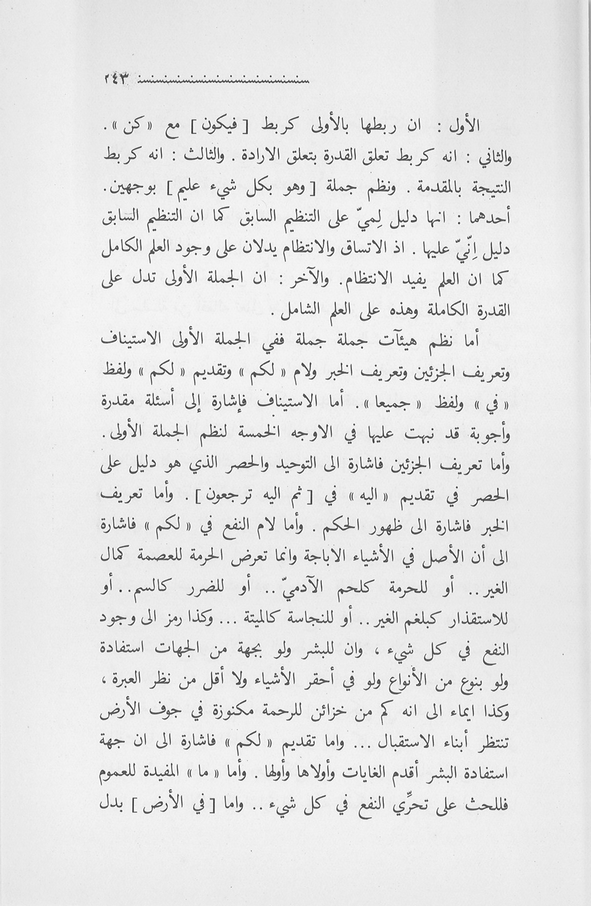 ٢٤٣
الأول : ان ربطها بالأولى كربط [ فيكون ] مع « كن » .
والثاني : انه كربط تعلق القدرة بتعلق الارادة . والثالث : انه كربط
النتيجة بالمقدمة . ونظم جملة [ وهو بكل شيء عليم ] بوجهين.
أحدهما : انها دليل لِميّ على التنظيم السابق كما ان التنظيم السابق
دليل اِنّيّ عليها . اذ الاتساق والانتظام يدلان على وجود العلم الكامل
كما ان العلم يفيد الانتظام. والآخر : ان الجملة الأولى تدل على
القدرة الكاملة وهذه على العلم الشامل .
أما نظم هيئآت جملة جملة ففي الجملة الأولى الاستيناف
وتعريف الجزئين وتعريف الخبر ولام « لكم » وتقديم « لكم » ولفظ
« في » ولفظ « جميعا » . أما الاستيناف فإشارة إلى أسئلة مقدرة
وأجوبة قد نبهت عليها في الاوجه الخمسة لنظم الجملة الأولى.
وأما تعريف الجزئين فاشارة الى التوحيد والحصر الذي هو دليل على
الحصر في تقديم « اليه » في [ ثم اليه ترجعون ] . وأما تعريف
الخبر فاشارة الى ظهور الحكم . وأما لام النفع في « لكم » فاشارة
الى أن الأصل في الأشياء الاباحة وانما تعرض الحرمة للعصمة كمال
الغير . . أو للحرمة كلحم الآدميّ . . أو للضرر كالسم . . أو
للاستقذار كبلغم الغير . . أو للنجاسة كالميتة ... وكذا رمز الى وجود
النفع في كل شيء ، وان للبشر ولو بجهة من الجهات استفادة
ولو بنوع من الأنواع ولو في أحقر الأشياء ولا أقل من نظر العبرة ،
وكذا ايماء الى انه كم من خزائن للرحمة مكنوزة في جوف الأرض
تنتظر أبناء الاستقبال ... واما تقديم « لكم » فاشارة الى ان جهة
استفادة البشر أقدم الغايات وأولاها وأولها . وأما « ما » المفيدة للعموم
فللحث على تحرِّي النفع في كل شيء . . واما [ في الأرض ] بدل